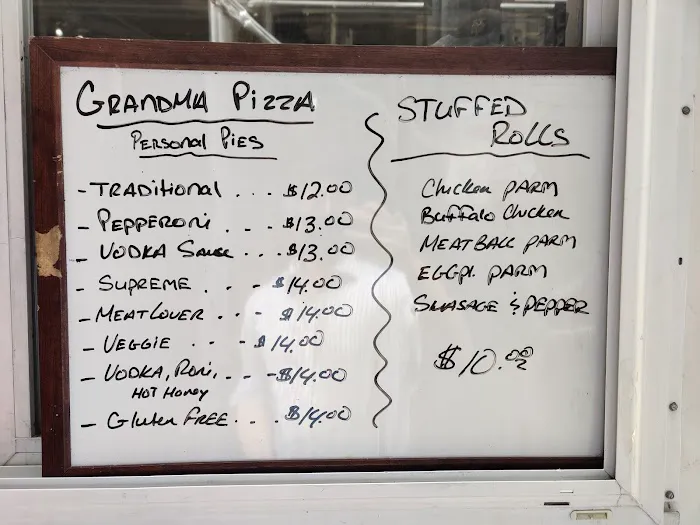 GRANDMA PIZZA
PERSONAL PIES
- TRADITIONAL . . . $12.00
- PEPPERONI . . . $13.00
- VODKA SAUCE . . . $13.00
- SUPREME . . - $14.00
- MEATLOVER . . - $14.00
- VEGGIE . . - $14.00
- VODKA, RONI, . - - $14.00
HOT HONEY
- GLUTEN FREE . . . $14.00
STUFFED
ROLLS
CHICKEN PARM
BUFFALO CHICKEN
MEATBALL PARM
EGGPL. PARM
SAUSAGE & PEPPER
$10.00